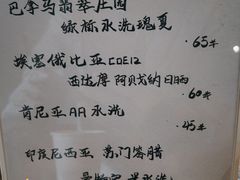 巴拿马翡翠庄园
绿标水洗瑰夏
65元
埃塞俄比亚COE12
西达摩 阿贝戈纳日晒
60元
肯尼亚AA水洗
45元
印度尼西亚 苏门答腊